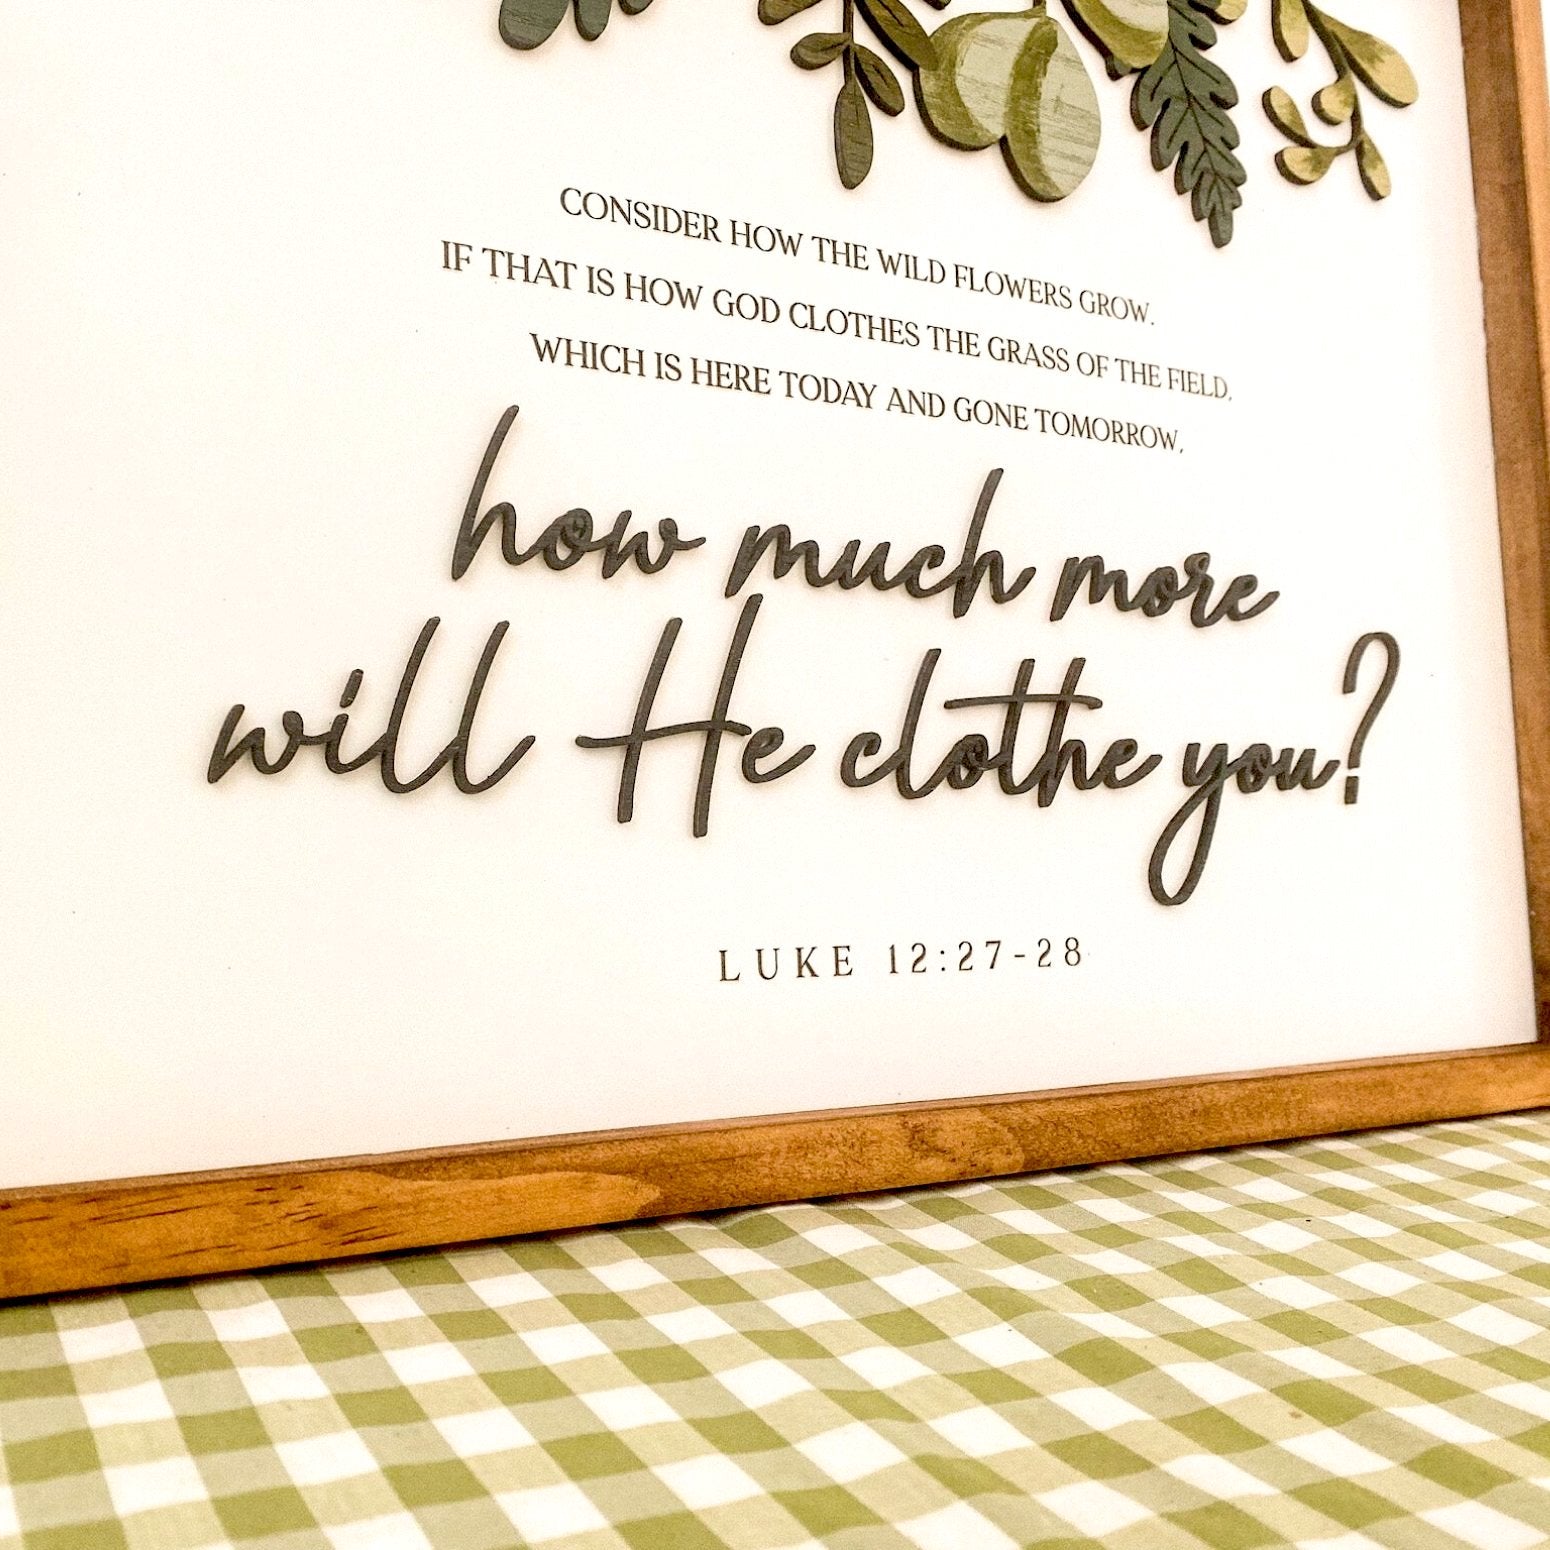 CONSIDER HOW THE WILD FLOWERS GROW.
IF THAT IS HOW GOD CLOTHES THE GRASS OF THE FIELD,
WHICH IS HERE TODAY AND GONE TOMORROW,
how much more
will He clothe you?
LUKE 12:27-28